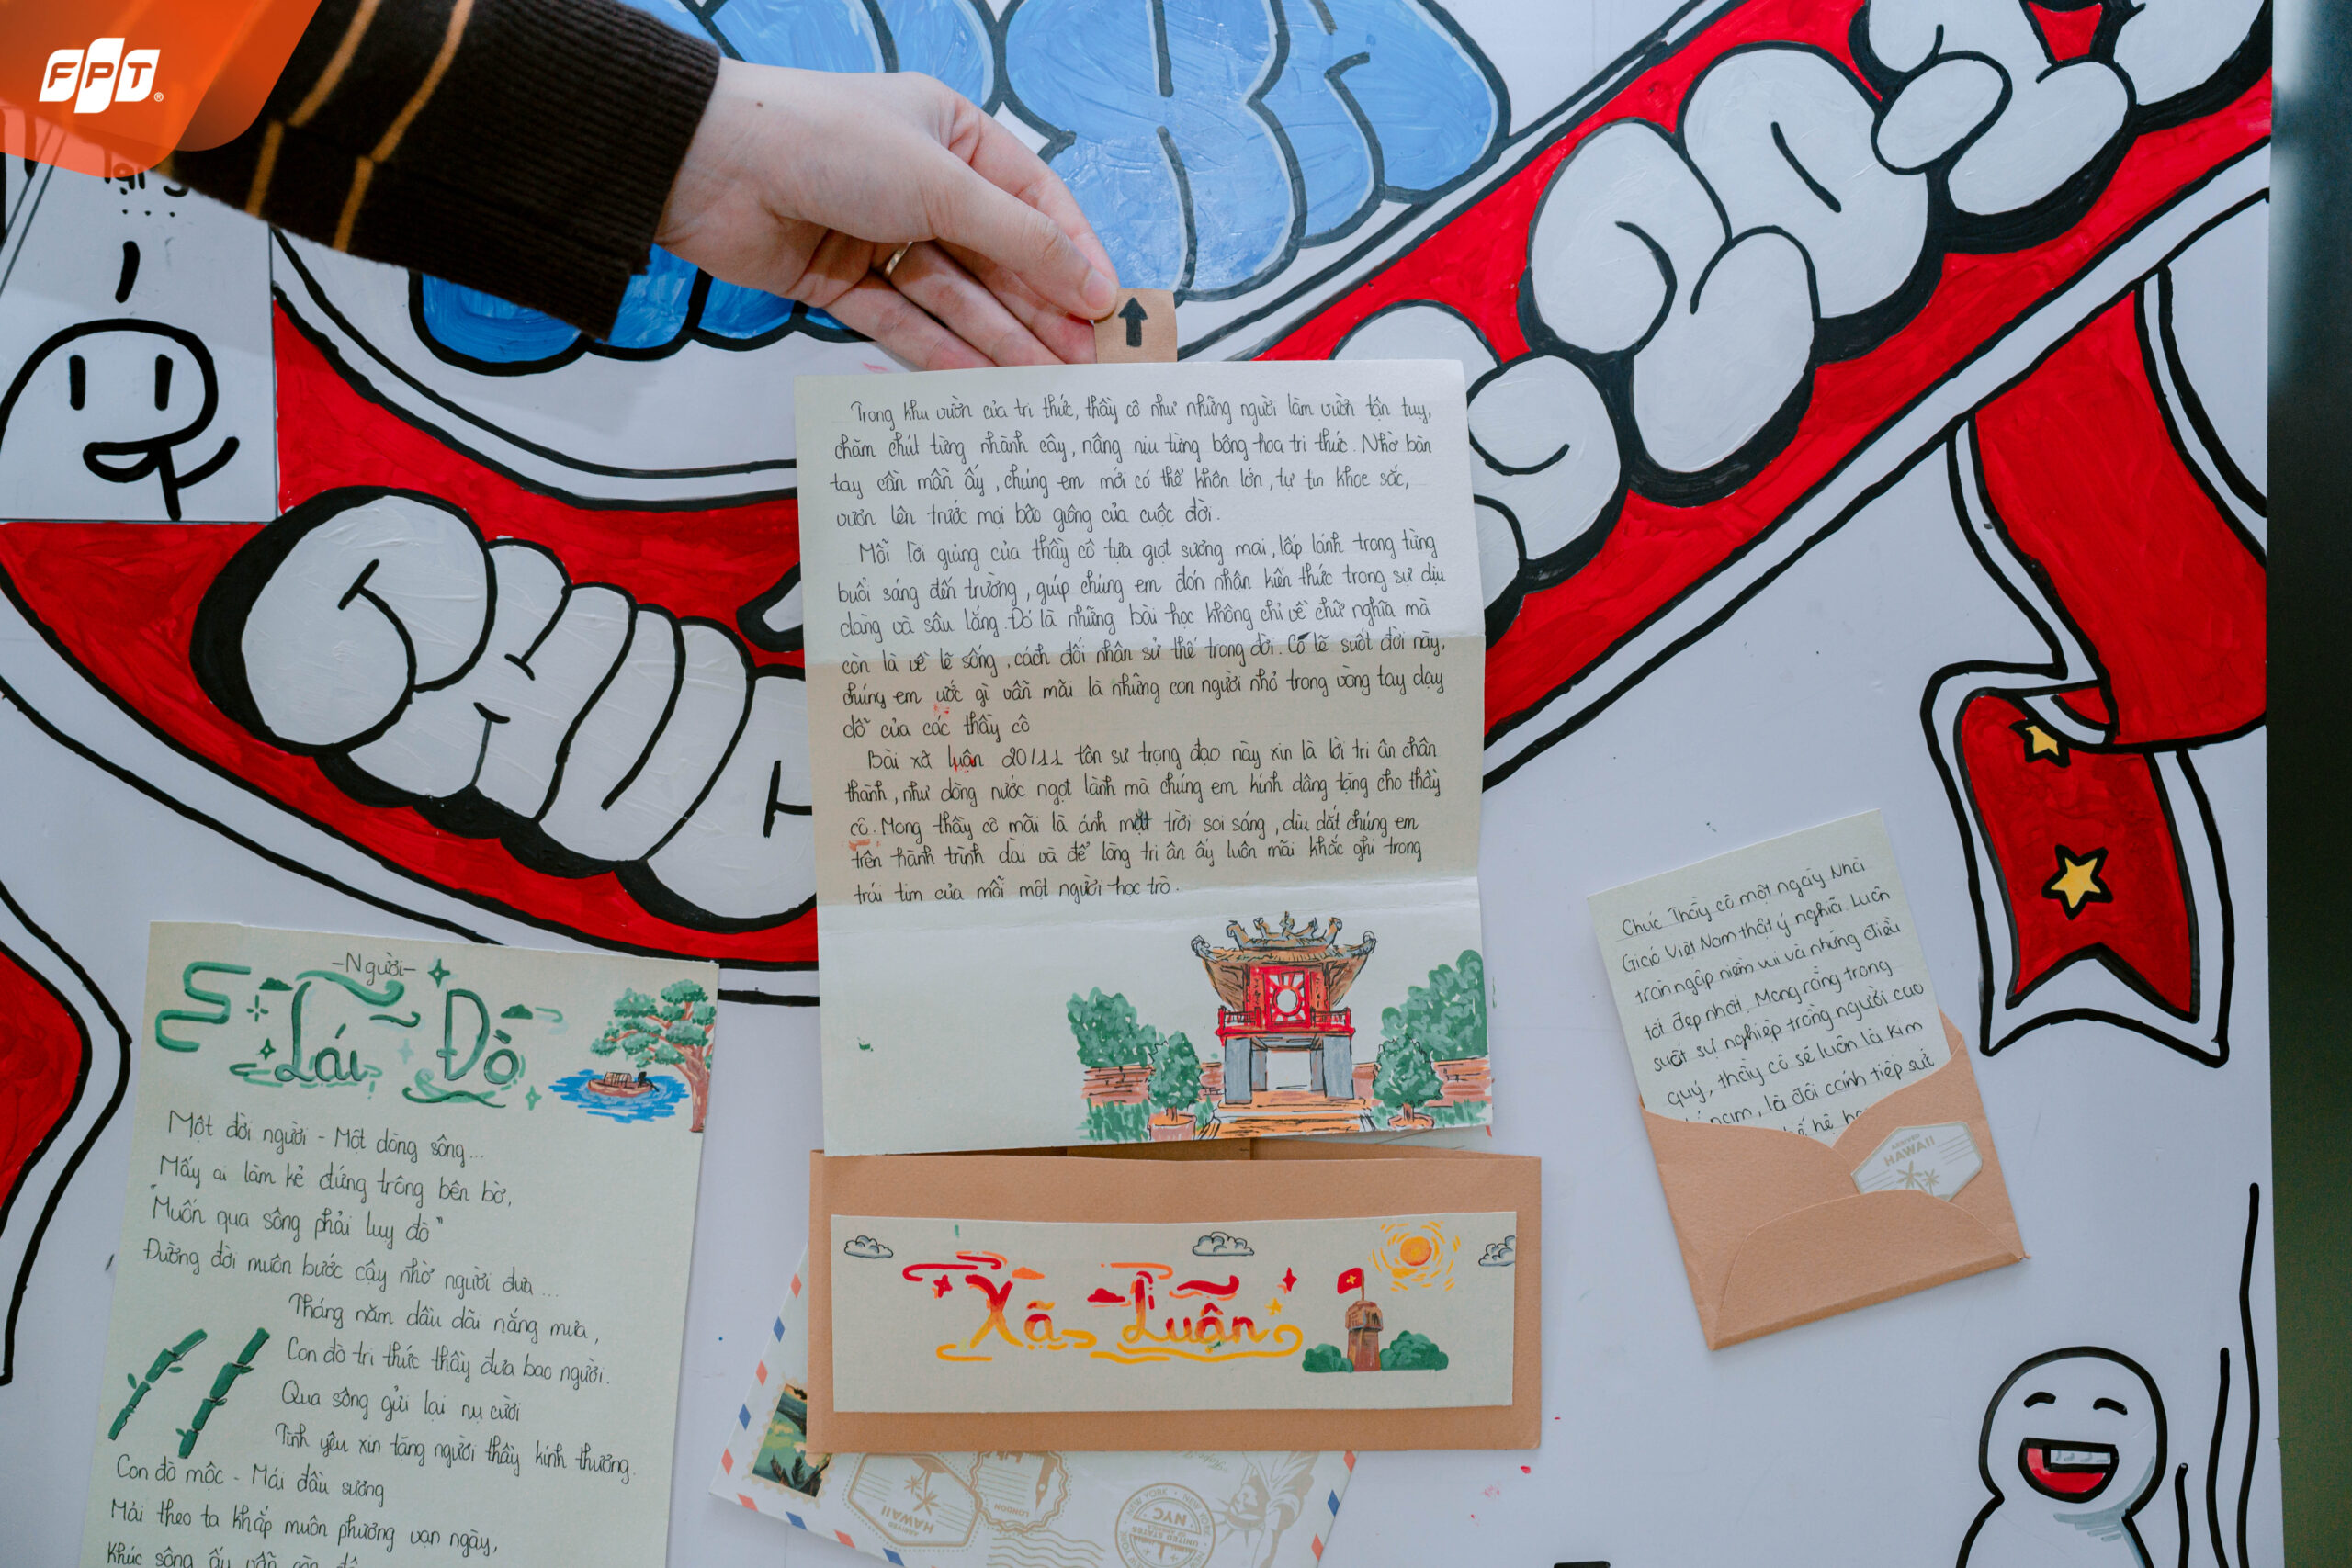 FPT
Trong khu vườn của tri thức, thầy cô như những người làm vườn tận tuy,
chăm chút từng nhành cây, nâng niu từng bông hoa tri thức. Nhờ bàn
tay cần mẫn ấy, chúng em mới có thể khôn lớn, tự tin khoe sắc,
vươn lên trước mọi bão giông của cuộc đời.
Mỗi lời giảng của thầy cô tựa giọt sương mai, lấp lánh trong từng
buổi sáng đến trường, giúp chúng em đón nhận kiến thức trong sự dịu
dàng và sâu lắng. Đó là những bài học không chỉ về chữ nghĩa mà
còn là về lẽ sống, cách đối nhân sử thế trong đời. Có lẽ suốt đời này,
chúng em ước gì vẫn mãi là những con người nhỏ trong vòng tay dạy
dỗ của các thầy cô
Bài xã luận 20/11 tôn sư trọng đạo này xin là lời tri ân chân
thành, như dòng nước ngọt lành mà chúng em kính dâng tặng cho thầy
cô. Mong thầy cô mãi là ánh mặt trời soi sáng, dìu dắt chúng em
trên hành trình dài và để lòng tri ân ấy luôn mãi khắc ghi trong
trái tim của mỗi một người học trò.
Xã Luận
-Người-
Lái Đò
Một đời người - Một dòng sông...
Mấy ai làm kẻ đứng trông bên bờ,
"Muốn qua sông phải luy đò"
Đường đời muôn bước cậy nhờ người đưa...
Tháng năm dầu dãi nắng mưa,
Con đò tri thức thầy đưa bao người.
Qua sông gửi lại nụ cười
Tình yêu xin tặng người thầy kính thương.
Con đò mộc - Mái đầu sương
Mãi theo ta khắp muôn phương vạn ngày,
Khúc sông ấy vẫn
Chúc Thầy cô một ngày Nhà
Giáo Việt Nam thật ý nghĩa. Luôn
tràn ngập niềm vui và những điều
tốt đẹp nhất. Mong rằng trong
suốt sự nghiệp trồng người cao
quý, thầy cô sẽ luôn là kim
nam, là đôi cánh tiếp sức
hế hệ
ARRIVED
HAWAII
ARRIVED
HAWAII
LONDON
NEW YORK
NYC
UNITED STATES
CHÚC